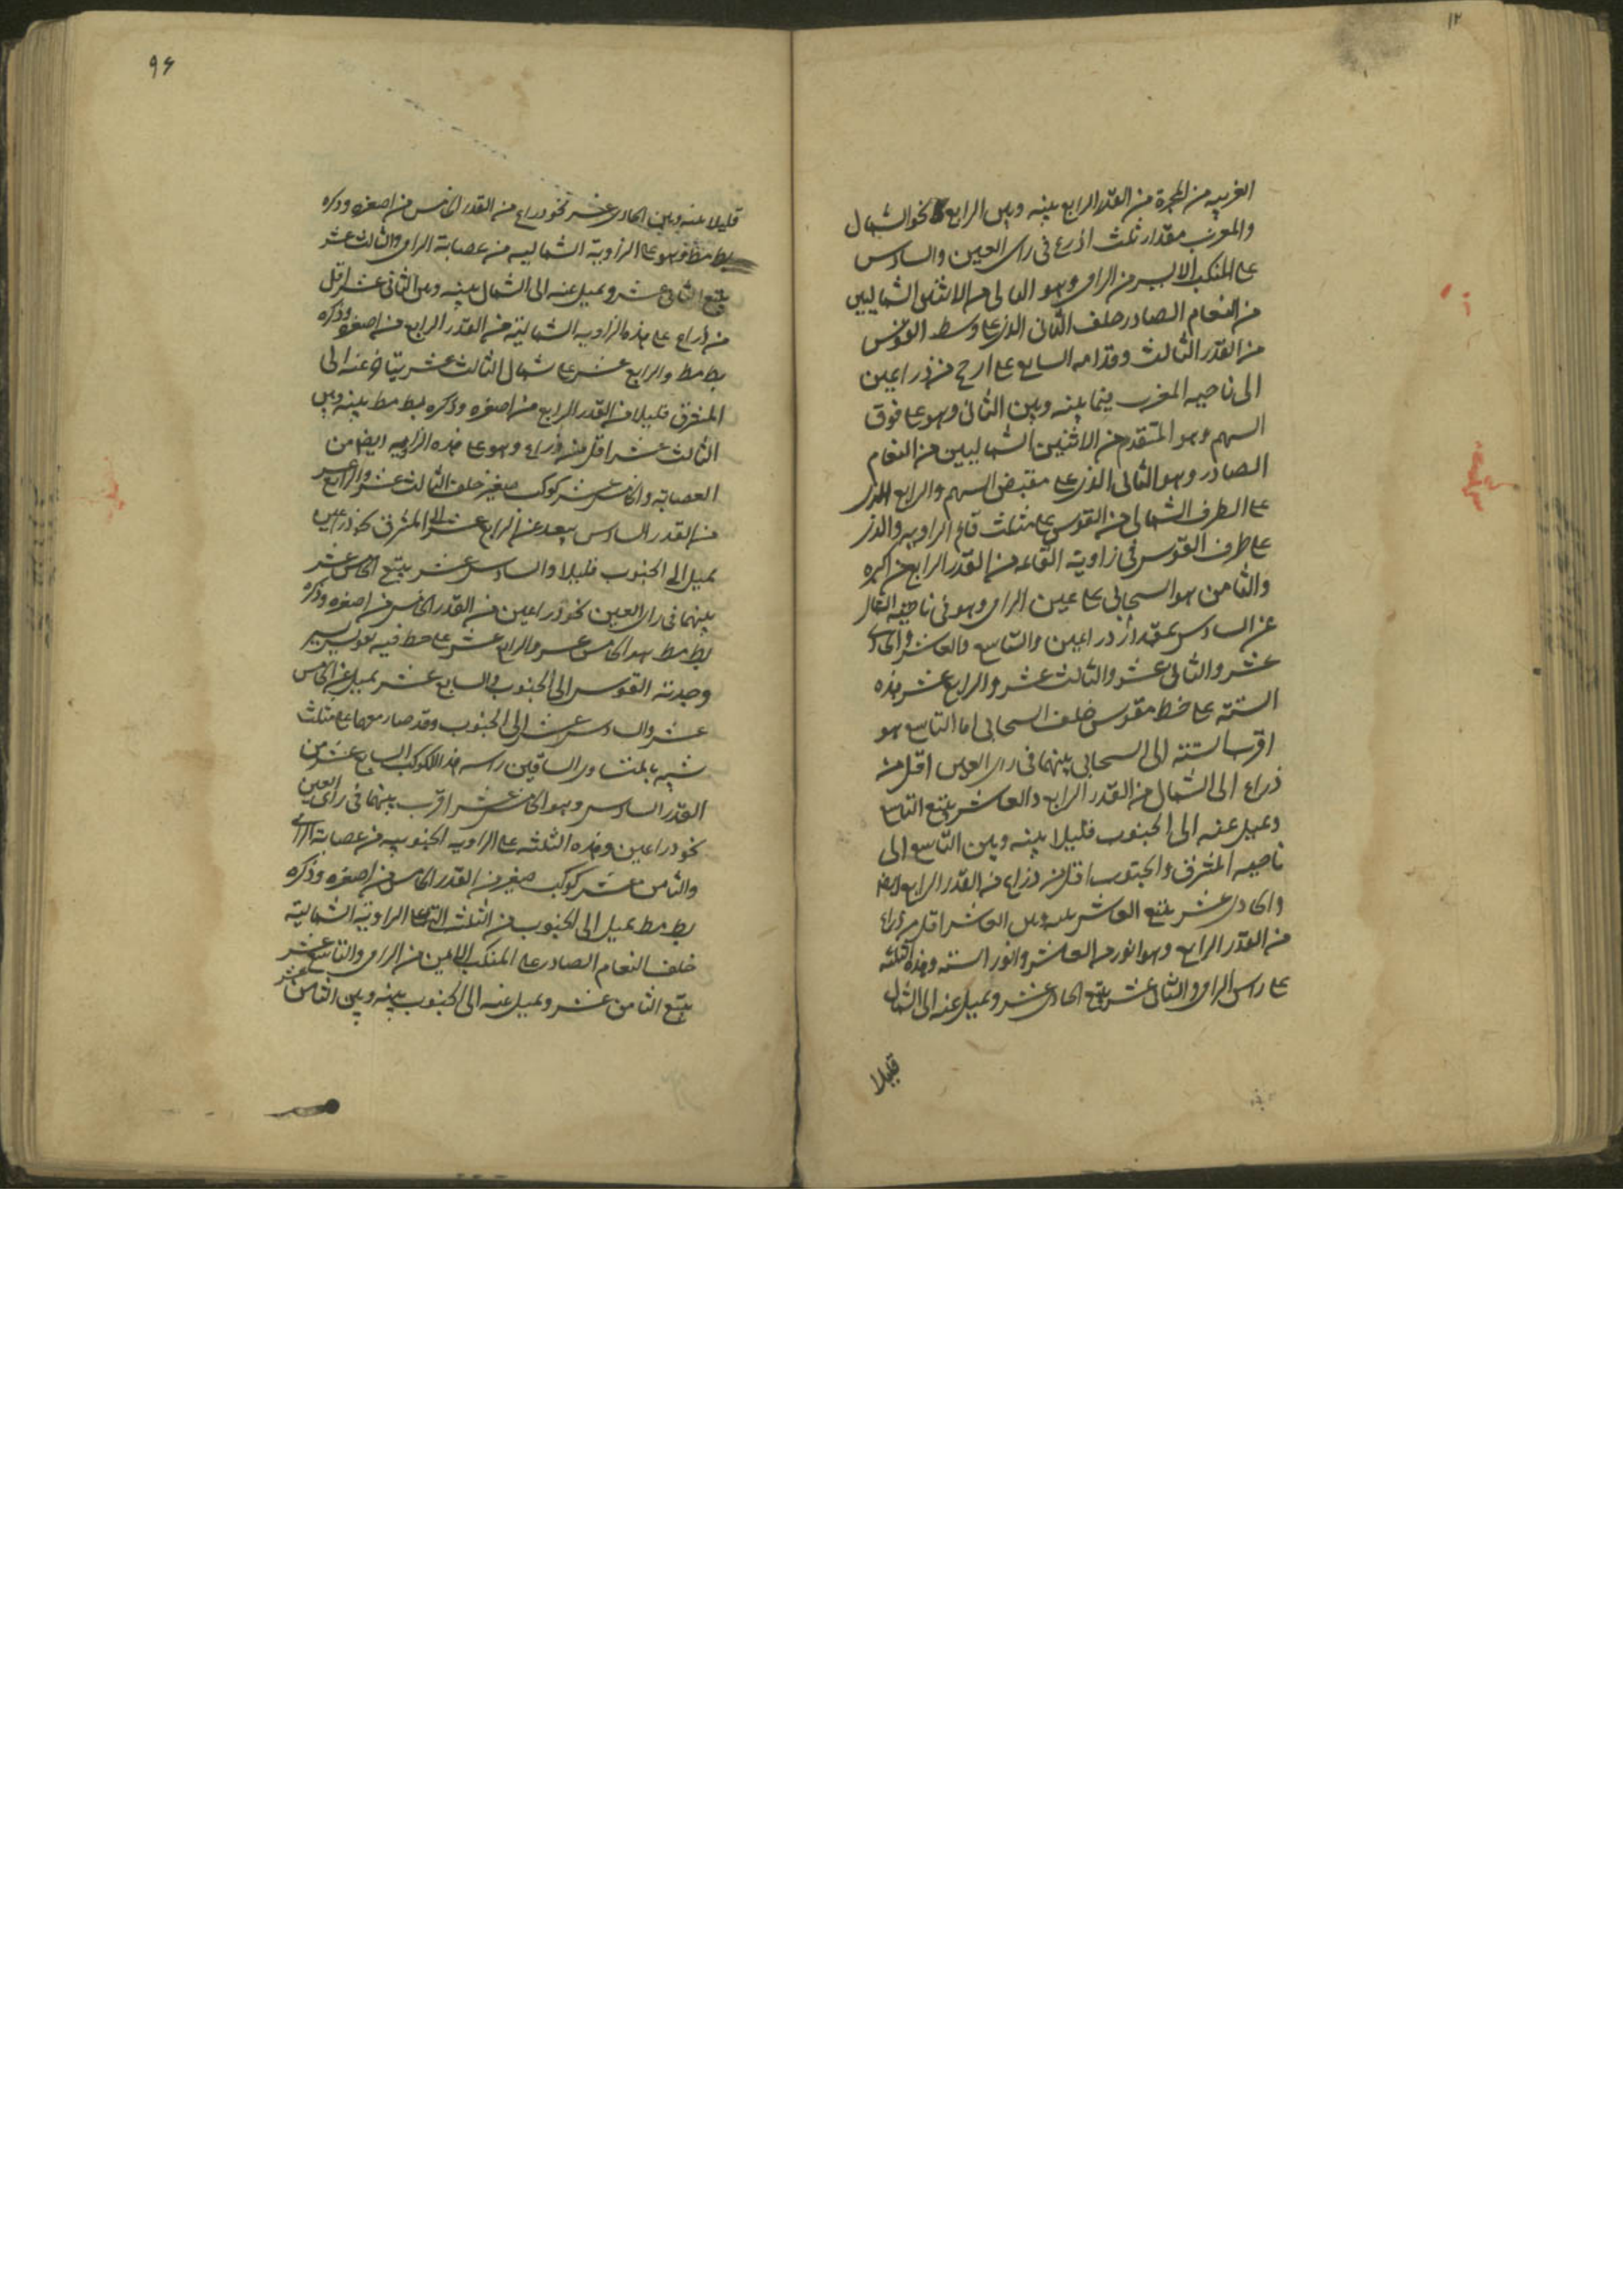 ١٢
الغربيه من المجرة من القدر الرابع بينه وبين الرابع نحو الشمال
والمغرب مقدار ثلث اذرع فى راى العين والسادس
على المنكب الايسر من الرامى وهو التالى من الاثنين الشماليين
من النعام الصادر خلف الثانى الذى على وسط القوس
من القدر الثالث وقدامه السابع على ارجح من ذراعين
الى ناحيه المغرب فيما بينه وبين الثانى وهو على فوق
السهم وهو المتقدم من الاثنين الشماليين من النعام
الصادر وهو الثانى الذى على مقبض السهم والرابع الذى
على الطرف الشمالى من القوس على مثلث قائم الزاويه والذى
على طرف القوس فى زاوية القائمه من القدر الرابع من اكبره
والثامن هو السحابى على عين الرامى وهو فى ناحية الشمال
عن السادس بمقدار ذراعين والتاسع والعاشر والحادى
عشر والثانى عشر والثالث عشر والرابع عشر هذه
الستة على خط مقوس خلف السحابى اما التاسع هو
اقرب الستة الى السحابى بينهما فى راى العين اقل من
ذراع الى الشمال من القدر الرابع والعاشر يتبع التاسع
ويميل عنه الى الجنوب قليلا بينه وبين التاسع الى
ناحيه المشرق والجنوب اقل من ذراع من القدر الرابع ايضا
والحادى عشر يتبع العاشر بينه وبين العاشر اقل من ذراع
من القدر الرابع وهو انور من العاشر وانور الستة وهذه الثلثه
على راس الرامى والثانى عشر يتبع الحادى عشر ويميل عنه الى الشمال
قليلا
٩٦
قليلا بينه وبين الحادى عشر نحو ذراع من القدر الخامس من اصغره وذكره
بطلميوس وهو على الزاوية الشماليه من عصابة الرامى والثالث عشر
يتبع الثانى عشر ويميل عنه الى الشمال بينه وبين الثانى عشر اقل
من ذراع على هذه الزاويه الشمالية من القدر الرابع من اصغره وذكره
بط مط والرابع عشر على شمال الثالث عشر يتياخر عنه الى
المشرق قليلا من القدر الرابع من اصغره وذكره بط مط بينه وبين
الثالث عشر اقل من ذراع وهو على هذه الزاويه ايضا من
العصابة والخامس عشر كوكب صغير خلف الثالث عشر والرابع عشر
من القدر السادس يبعد عن الرابع عشر الى المشرق نحو ذراعين
يميل الى الجنوب قليلا والسادس عشر يتبع الخامس عشر
بينهما فى راى العين نحو ذراعين من القدر الخامس من اصغره وذكره
بط مط هو الخامس عشر والرابع عشر على خط فيه تقويس يسير
وحدبته القوس الى الجنوب والسابع عشر يميل عن الخامس
عشر والسادس عشر الى الجنوب وقد صار معهما على مثلث
شبيه بالمتساوى الساقين راسه هذا الكوكب السابع عشر من
القدر السادس وهو الى الخامس عشر اقرب بينهما فى راى العين
نحو ذراعين وهذه الثلثه على الزاويه الجنوبيه من عصابة الرامى
والثامن عشر كوكب صغير من القدر الخامس من اصغره وذكره
بط مط يميل الى الجنوب من الثلث التى على الزاوية الشمالية
خلف النعام الصادر على المنكب الايمن من الرامى والتاسع عشر
يتبع الثامن عشر ويميل عنه الى الجنوب بينه وبين الثامن عشر